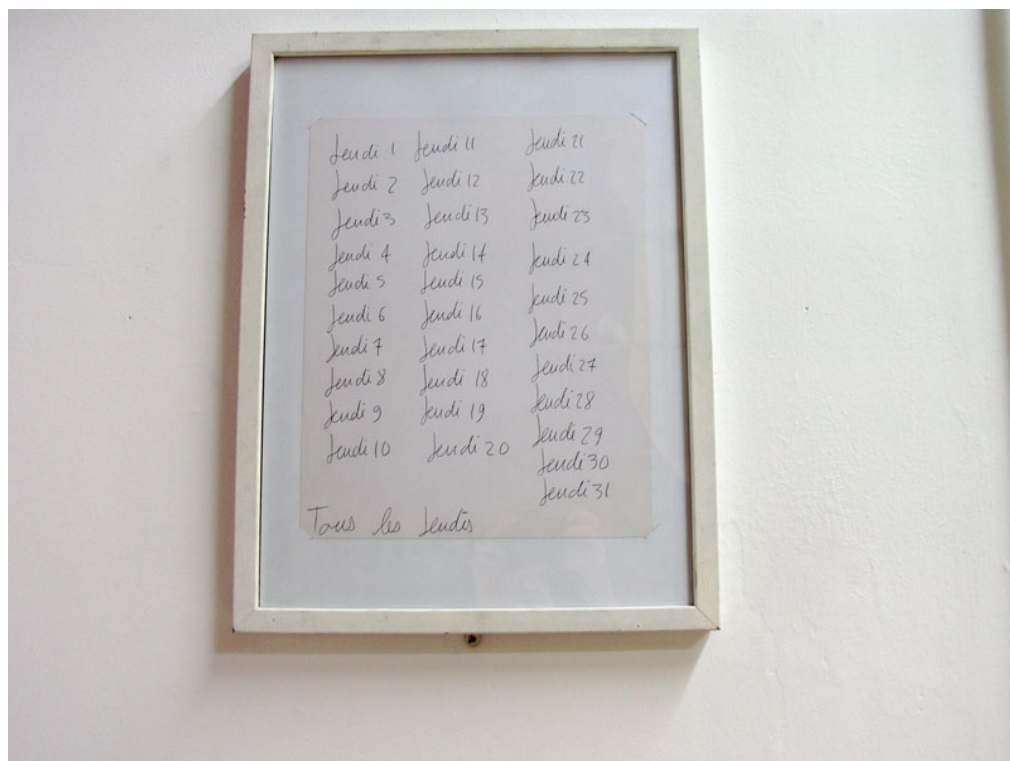 Jeudi 1
Jeudi 2
Jeudi 3
Jeudi 4
Jeudi 5
Jeudi 6
Jeudi 7
Jeudi 8
Jeudi 9
Jeudi 10
Jeudi 11
Jeudi 12
Jeudi 13
Jeudi 14
Jeudi 15
Jeudi 16
Jeudi 17
Jeudi 18
Jeudi 19
Jeudi 20
Jeudi 21
Jeudi 22
Jeudi 23
Jeudi 24
Jeudi 25
Jeudi 26
Jeudi 27
Jeudi 28
Jeudi 29
Jeudi 30
Jeudi 31
Tous les Jeudis